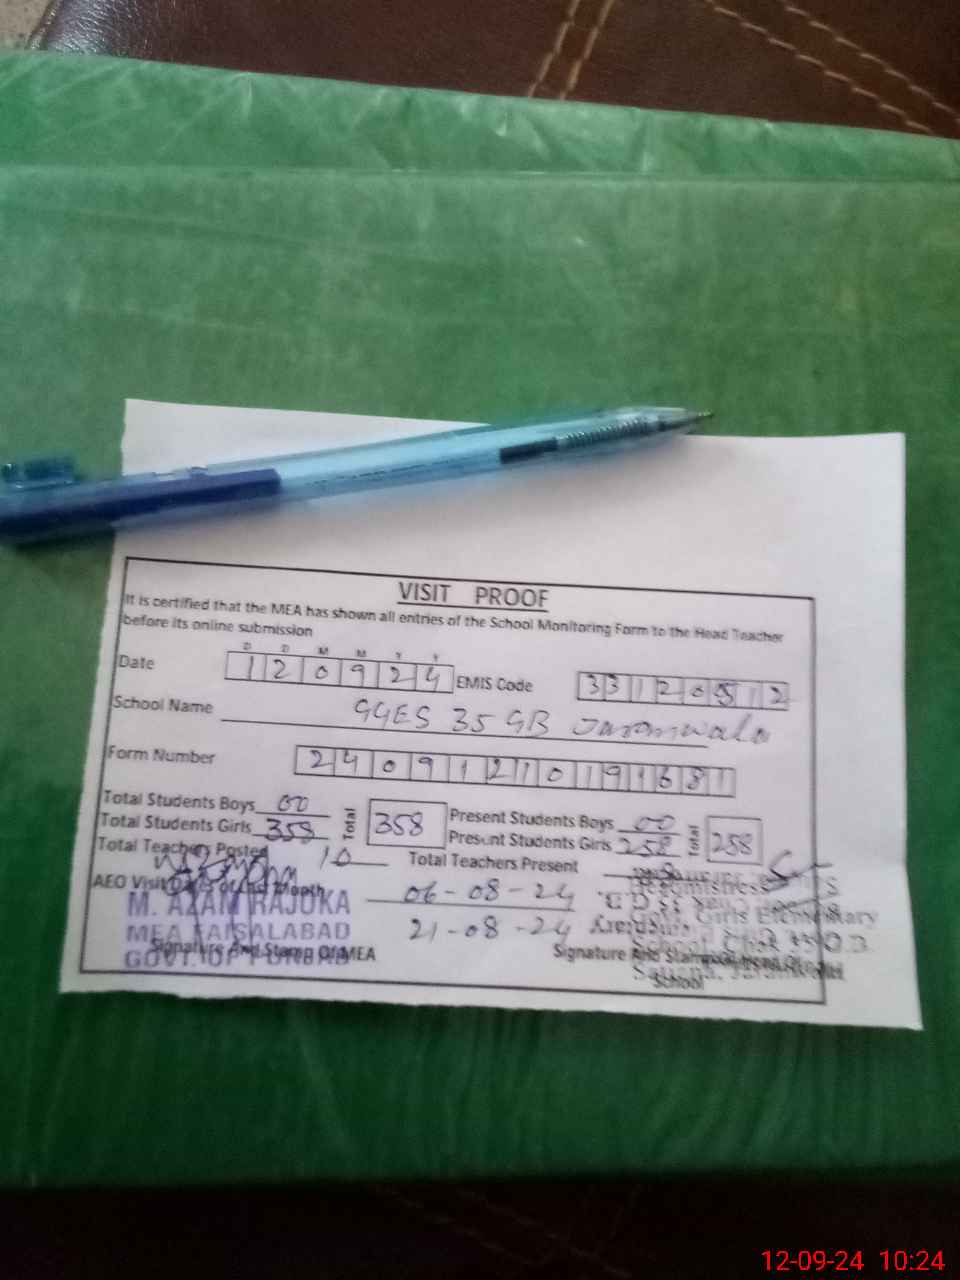 VISIT PROOF
It is certified that the MEA has shown all entries of the School Monitoring Form to the Head Teacher
before its online submission
D D M M Y Y
Date 1 2 0 9 2 4 EMIS Code 3 3 1 2 0 5 1 2
School Name GGES 35 GB Jaranwala
Form Number 2 4 0 9 1 2 1 0 1 9 1 6 8 1
Total Students Boys 00 Total 358 Present Students Boys 00 Total 258
Total Students Girls 358 Present Students Girls 258
Total Teachers Posted 10 Total Teachers Present
AEO Visit Dates of the Month 06-08-24
21-08-24
M. AZAM RAJOKA
MEA FAISALABAD
GOVT. OF PUNJAB
Signature And Stamp Of MEA
Headmistress
Govt. Girls Elementary
School Chak
Signature And Stamp
School
12-09-24 10:24